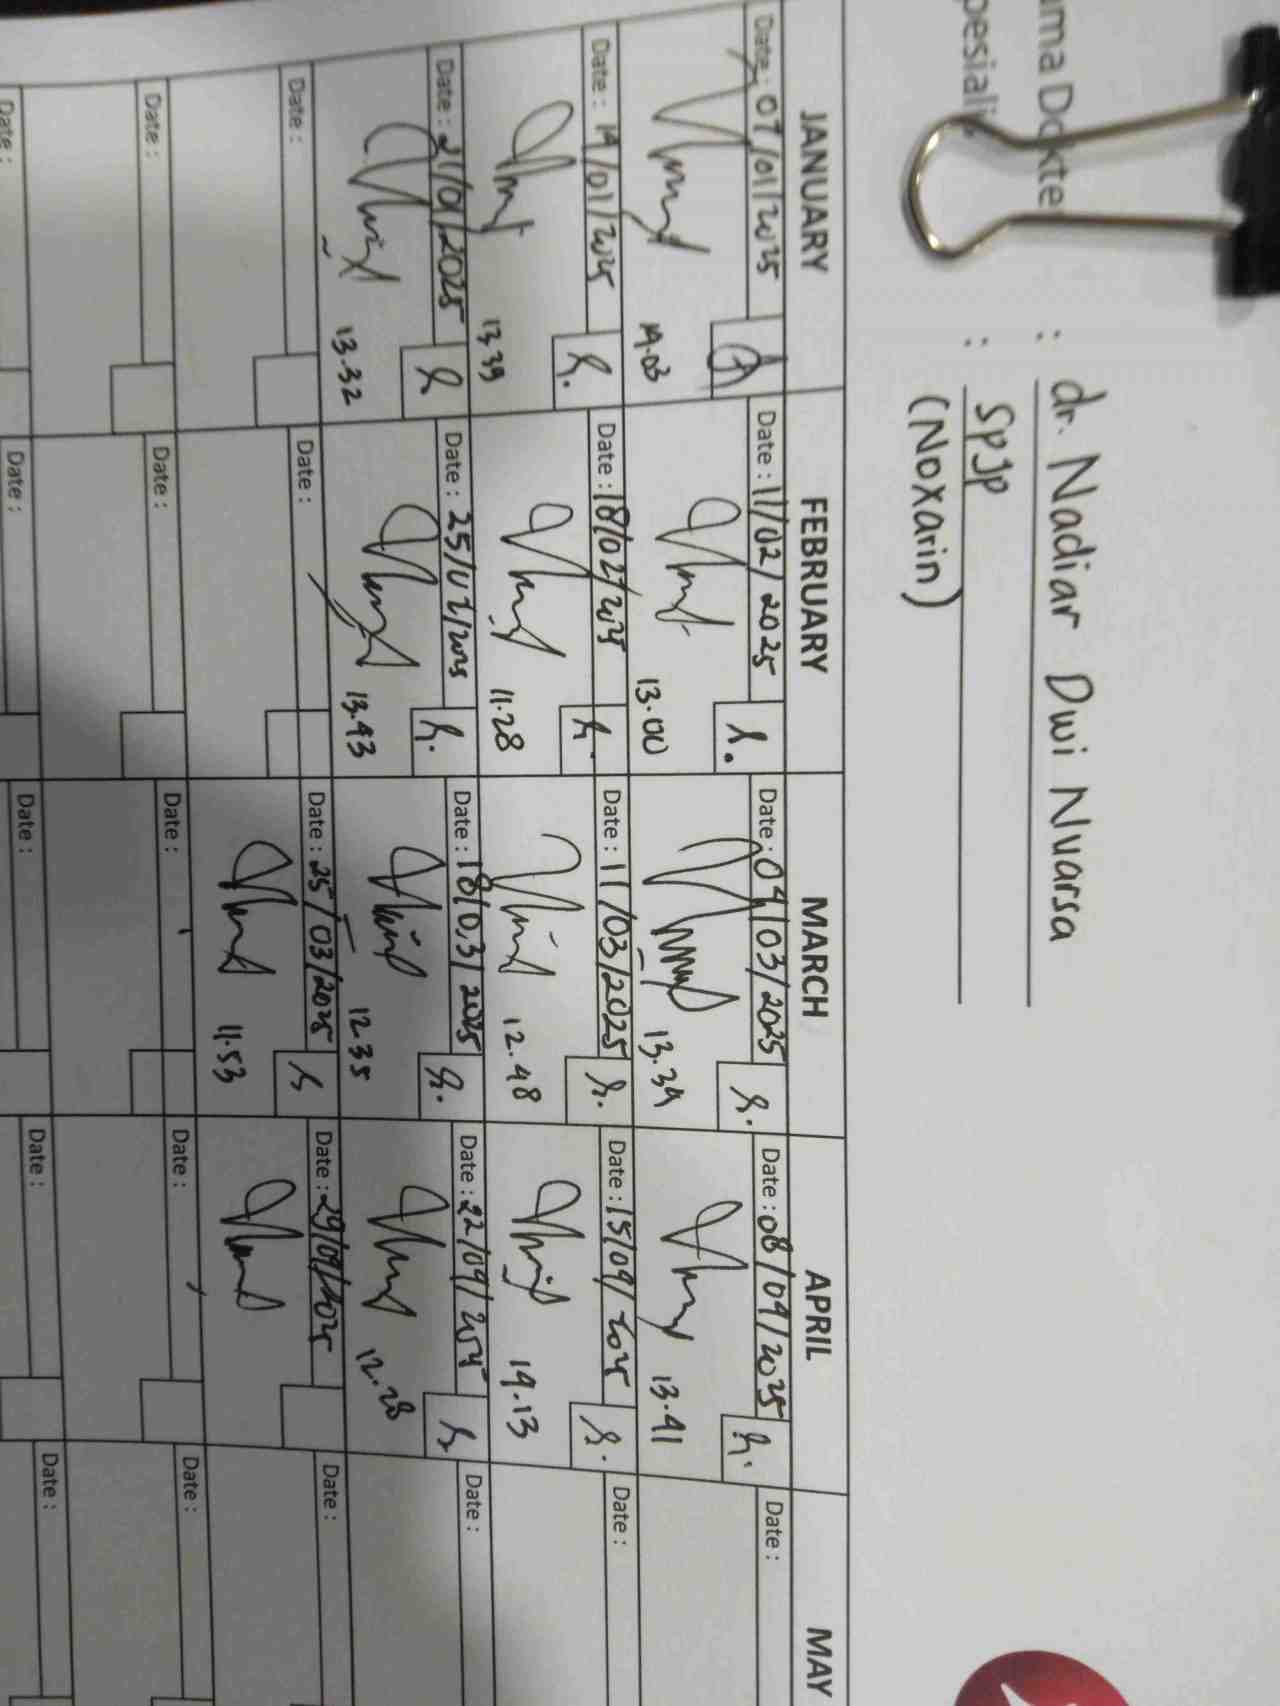 ma Dokte : dr. Nadiar Dwi Nuarsa
pesiali : SpJP
(Noxarin)
JANUARY FEBRUARY MARCH APRIL MAY
Date: 07/01/2025 Date: 11/02/2025 Date: 04/03/2025 Date: 08/04/2025 Date:
14.03 13.00 13.34 13.41
Date: 14/01/2025 Date: 18/02/2025 Date: 11/03/2025 Date: 15/04/2025 Date:
13.39 11.28 12.48 14.13
Date: 21/01/2025 Date: 25/02/2025 Date: 18/03/2025 Date: 22/04/2025 Date:
13.32 13.43 12.35 12.28
Date: Date: Date: 25/03/2025 Date: 29/04/2025 Date:
11.53
Date: Date: Date: Date: Date:
Date: Date: Date: Date: Date: